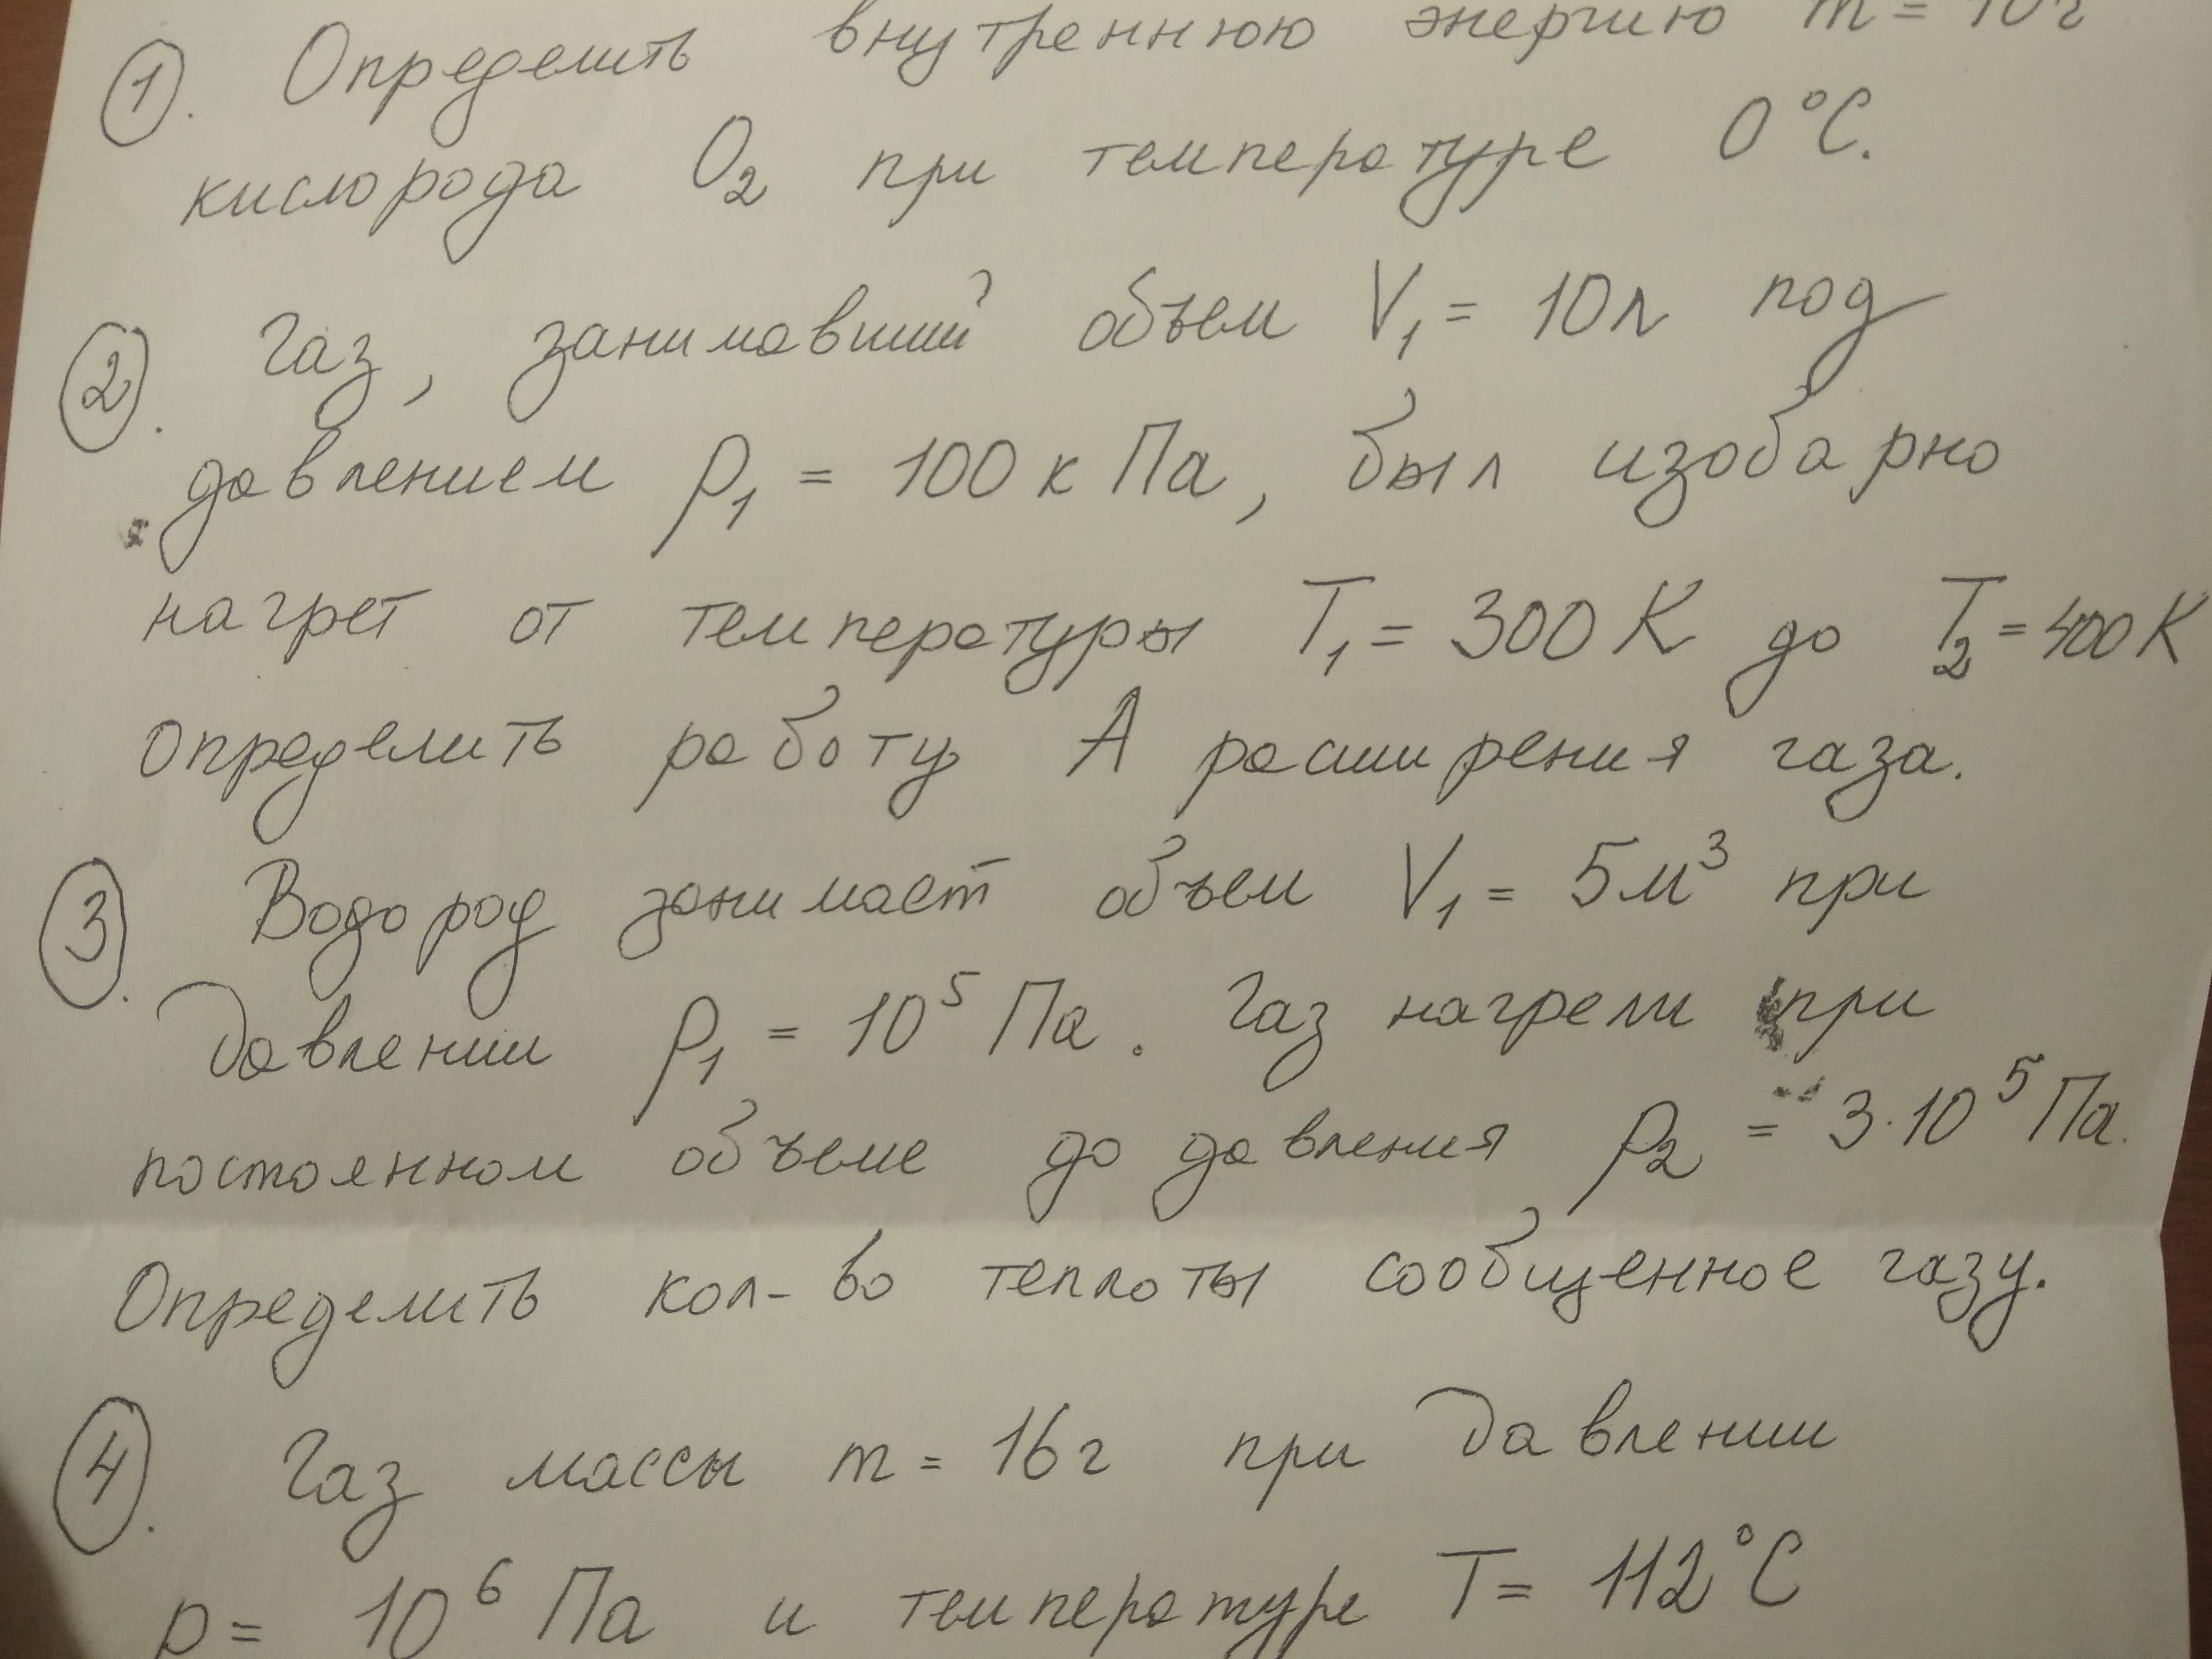 1. Определить внутреннюю энергию m = 10 г
кислорода O₂ при температуре 0°C.
2. Газ, занимавший объем V₁ = 10л под
давлением p₁ = 100 кПа, был изобарно
нагрет от температуры T₁ = 300 K до T₂ = 400 K
Определить работу A расширения газа.
3. Водород занимает объем V₁ = 5м³ при
давлении p₁ = 10⁵ Па. Газ нагрели при
постоянном объеме до давления p₂ = 3·10⁵ Па.
Определить кол-во теплоты сообщенное газу.
4. Газ массы m = 16г при давлении
p = 10⁶ Па и температуре T = 112°C